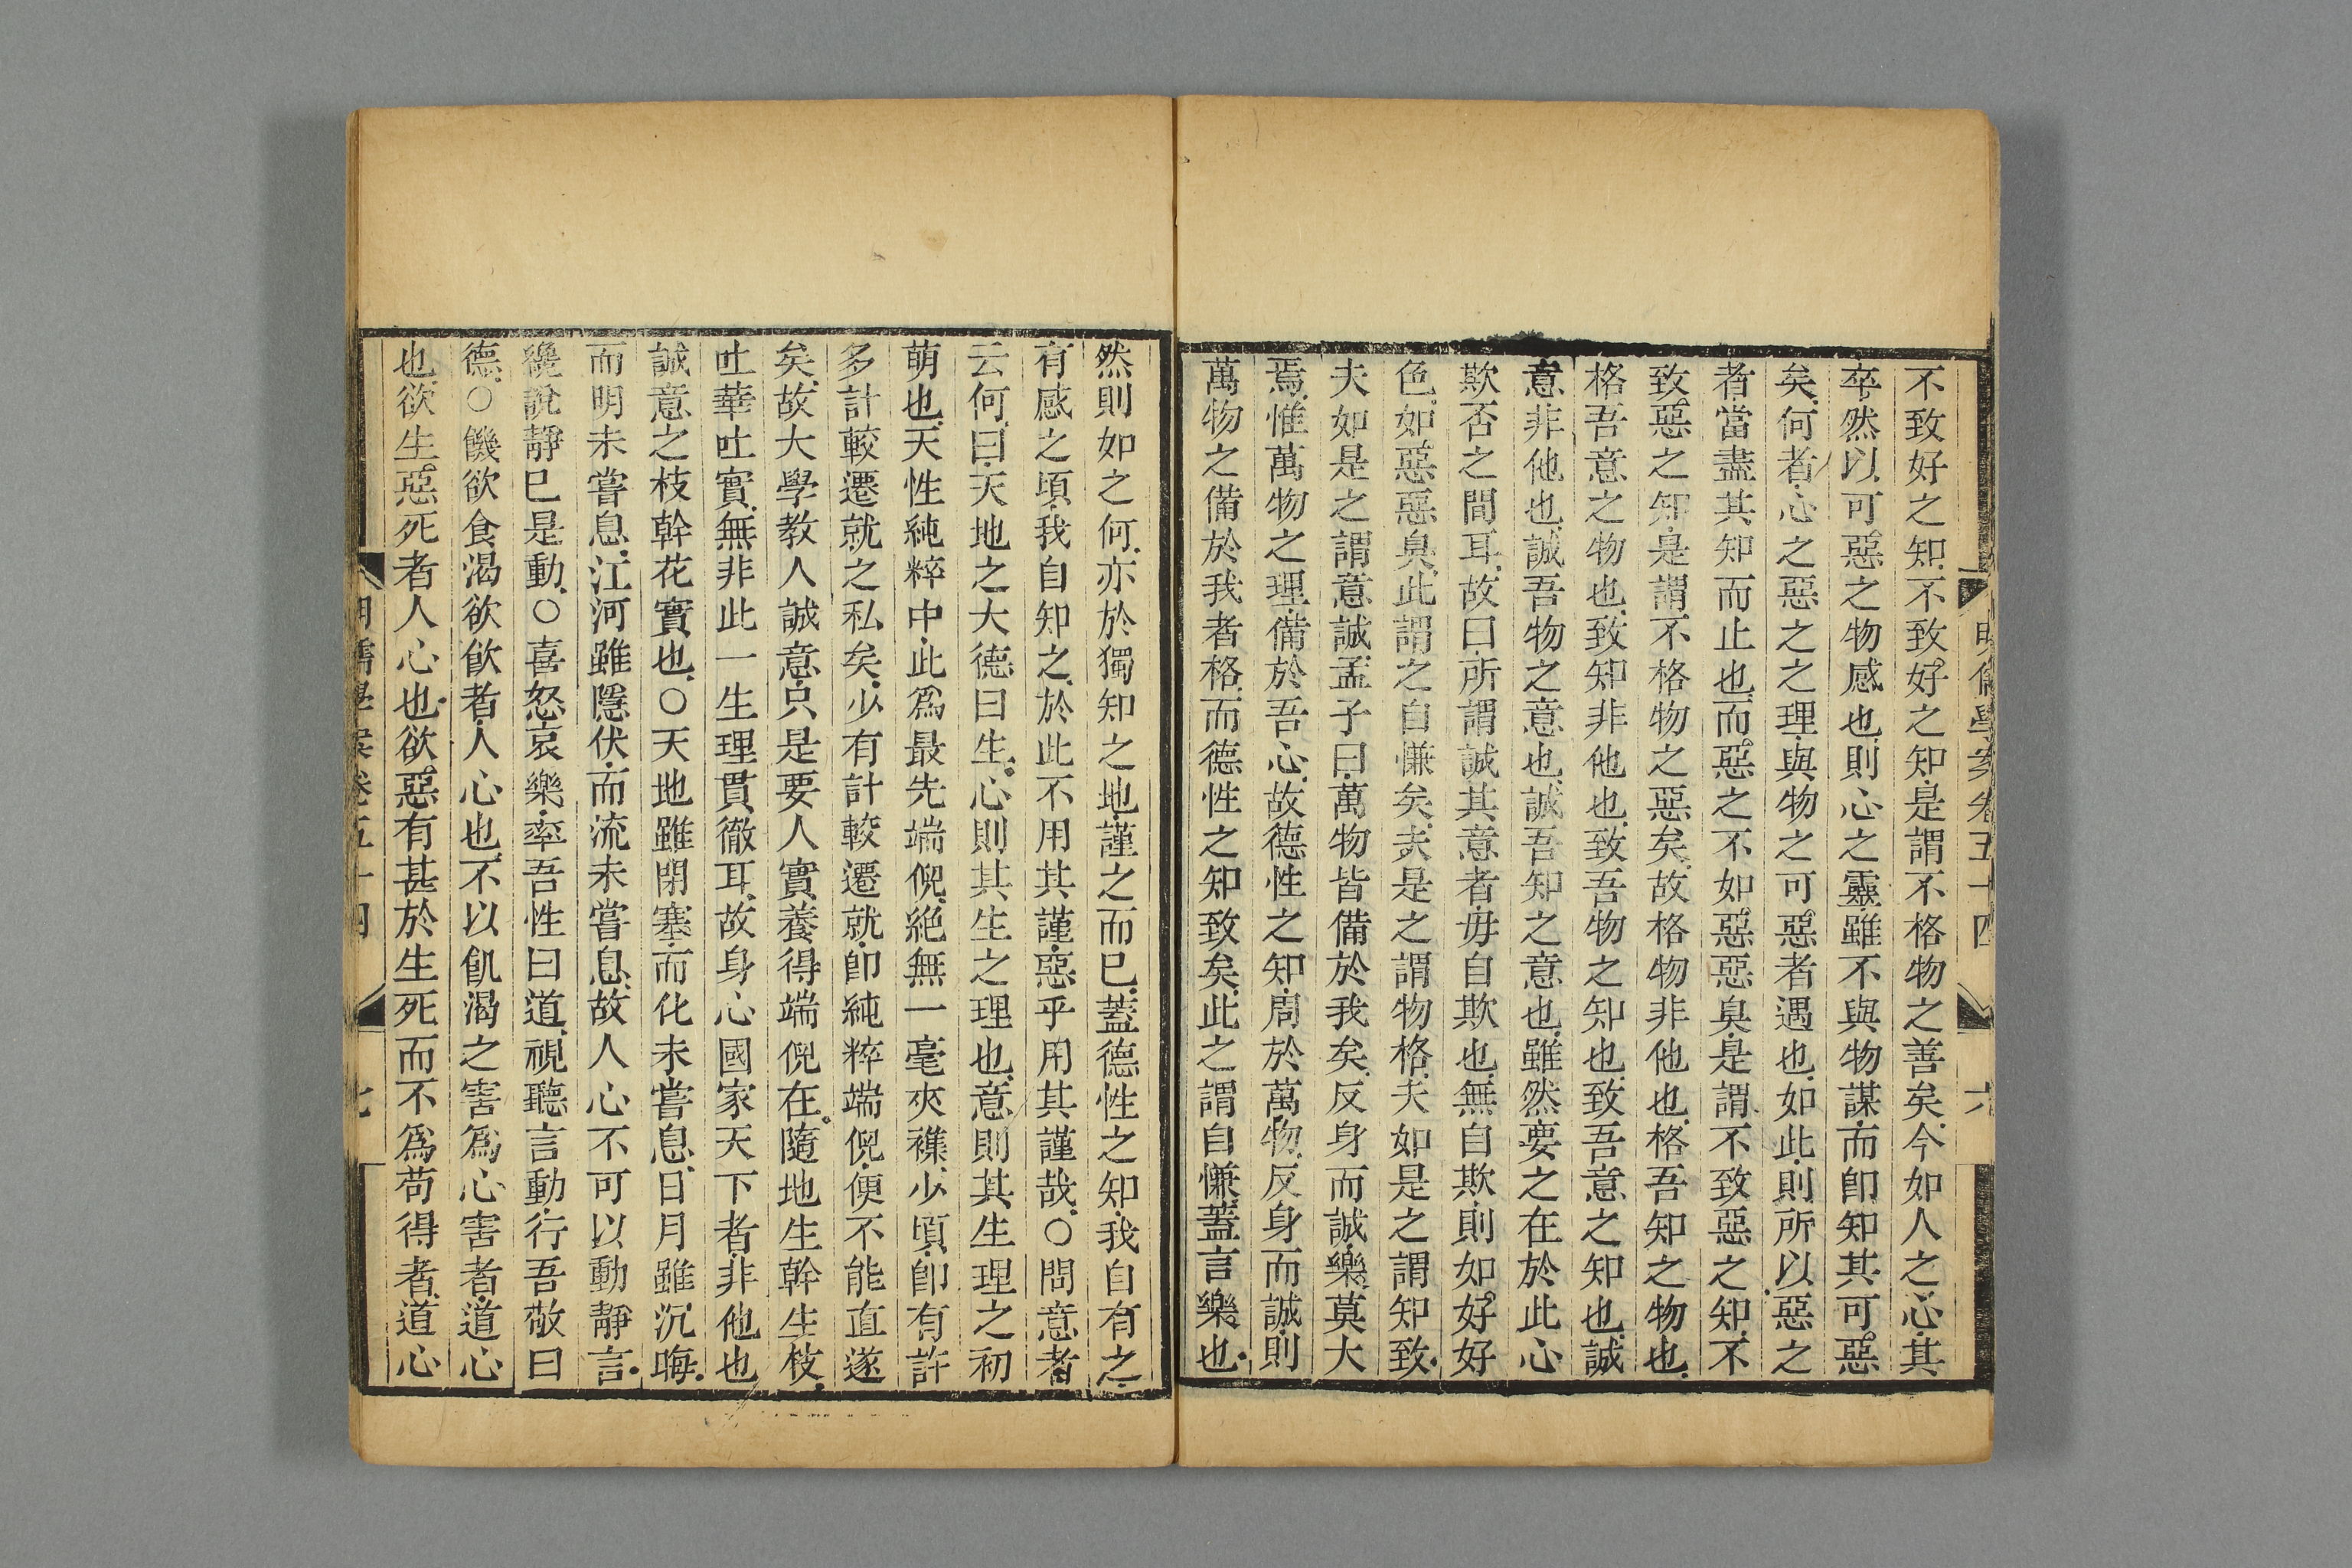 明儒學案卷五十四
六
不致好之知不致好之知是謂不格物之善矣今如人之心其
卒然以可惡之物感也則心之靈雖不與物謀而卽知其可惡
矣何者心之惡之之理與物之可惡者遇也如此則所以惡之
者當盡其知而止也而惡之不如惡惡臭是謂不致惡之知不
致惡之知是謂不格物之惡矣故格物非他也格吾知之物也
格吾意之物也致知非他也致吾物之知也致吾意之知也誠
意非他也誠吾物之意也誠吾知之意也雖然要之在於此心
欺否之間耳故曰所謂誠其意者毋自欺也無自欺則如好好
色如惡惡臭此謂之自慊矣夫是之謂物格夫如是之謂知致
夫如是之謂意誠孟子曰萬物皆備於我矣反身而誠樂莫大
焉惟萬物之理備於吾心故德性之知周於萬物反身而誠則
萬物之備於我者格而德性之知致矣此之謂自慊蓋言樂也
然則如之何亦於獨知之地謹之而已蓋德性之知我自有之
有感之頃我自知之於此不用其謹惡乎用其謹哉○問意者
云何曰天地之大德曰生心則其生之理也意則其生理之初
萌也天性純粹中此爲最先端倪絕無一毫夾襍少頃卽有許
多計較遷就之私矣少有計較遷就卽純粹端倪便不能直遂
矣故大學教人誠意只是要人實養得端倪在隨地生幹生枝
吐華吐實無非此一生理貫徹耳故身心國家天下者非他也
誠意之枝幹花實也○天地雖閉塞而化未嘗息日月雖沉晦
而明未嘗息江河雖隱伏而流未嘗息故人心不可以動靜言
纔說靜已是動○喜怒哀樂率吾性曰道視聽言動行吾敬曰
德○饑欲食渴欲飮者人心也不以飢渴之害爲心害者道心
也欲生惡死者人心也欲惡有甚於生死而不爲苟得者道心
明儒學案卷五十四
七